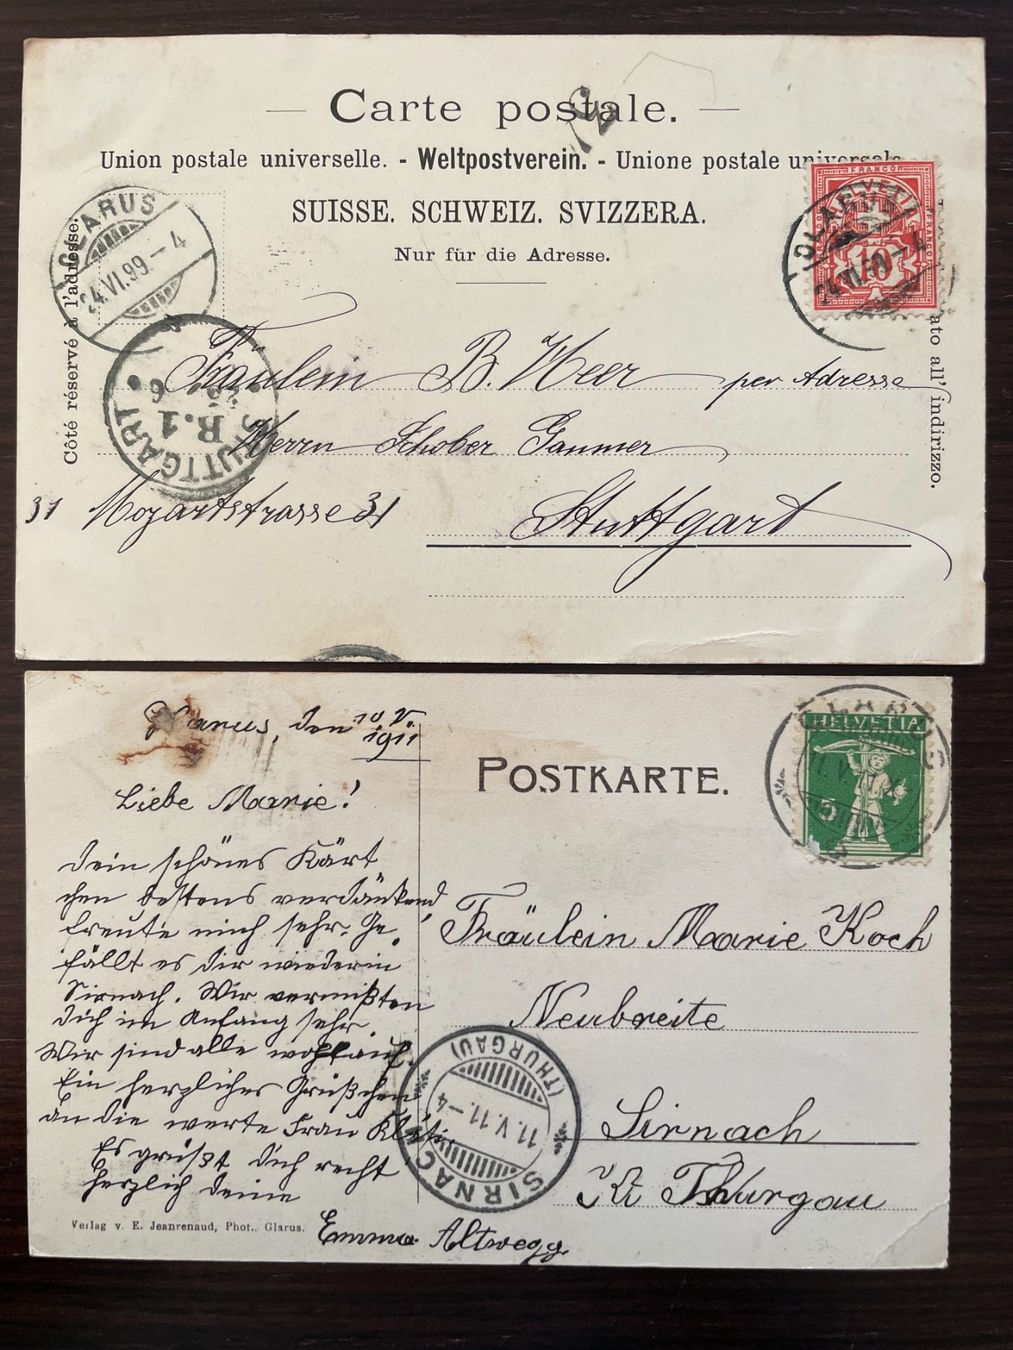 Carte postale.
Union postale universelle. - Weltpostverein. - Unione postale universale
SUISSE. SCHWEIZ. SVIZZERA.
Nur für die Adresse.
Côté réservé à l'adresse.
ato all' indirizzo.
FRANCO
HELVETIA
10
GLARUS
24.VI.99.-4
GLARUS
STUTTGART
R.1
Fräulein B. Heer per Adresse
Herrn Schober
31 Mozartstrasse 31
Stuttgart
Glarus, den 10 V. 1911
POSTKARTE.
HELVETIA
5
GLARUS
11.V
Liebe Marie!
Dein schönes Kärt
chen bestens verdankend
freute mich sehr. Ge
fällt es dir wieder in
Sirnach. Wir vermißten
dich im Anfang sehr.
Wir sind alle wohlauf.
Ein herzliches Grüßchen
an die werte Frau
Es grüßt dich recht
herzlich deine
Emma Altwegg
Verlag v. E. Jeanrenaud, Phot., Glarus.
Fräulein Marie Koch
Neubreite
Sirnach
Kt Thurgau
SIRNACH
(THURGAU)
11.V.11.-4